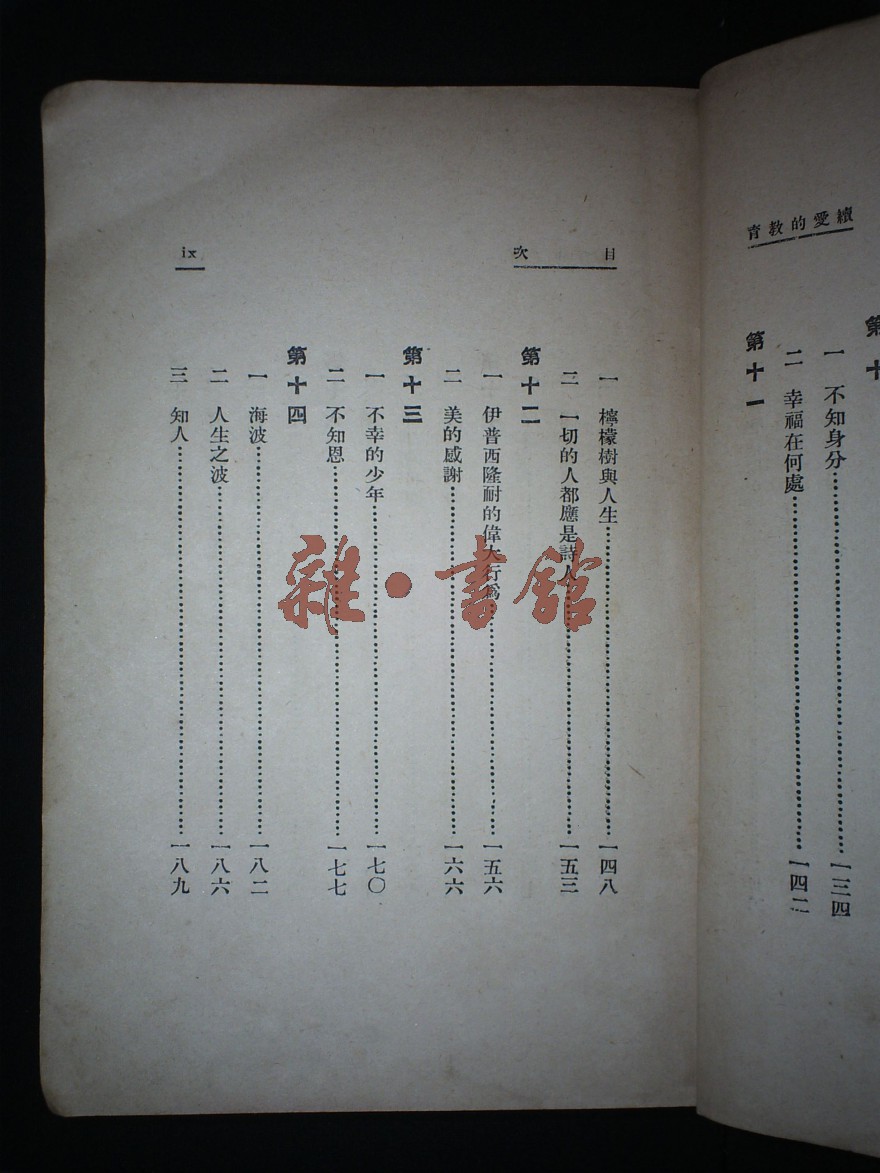 續愛的教育
第十
一 不知身分……一三四
二 幸福在何處……一四二
第十一
目次
ix
一 檸檬樹與人生……一四八
二 一切的人都應是詩人……一五三
第十二
一 伊普西隆耐的偉大行爲……一五六
二 美的感謝……一六六
第十三
一 不幸的少年……一七〇
二 不知恩……一七七
第十四
一 海波……一八二
二 人生之波……一八六
三 知人……一八九
雜·書館